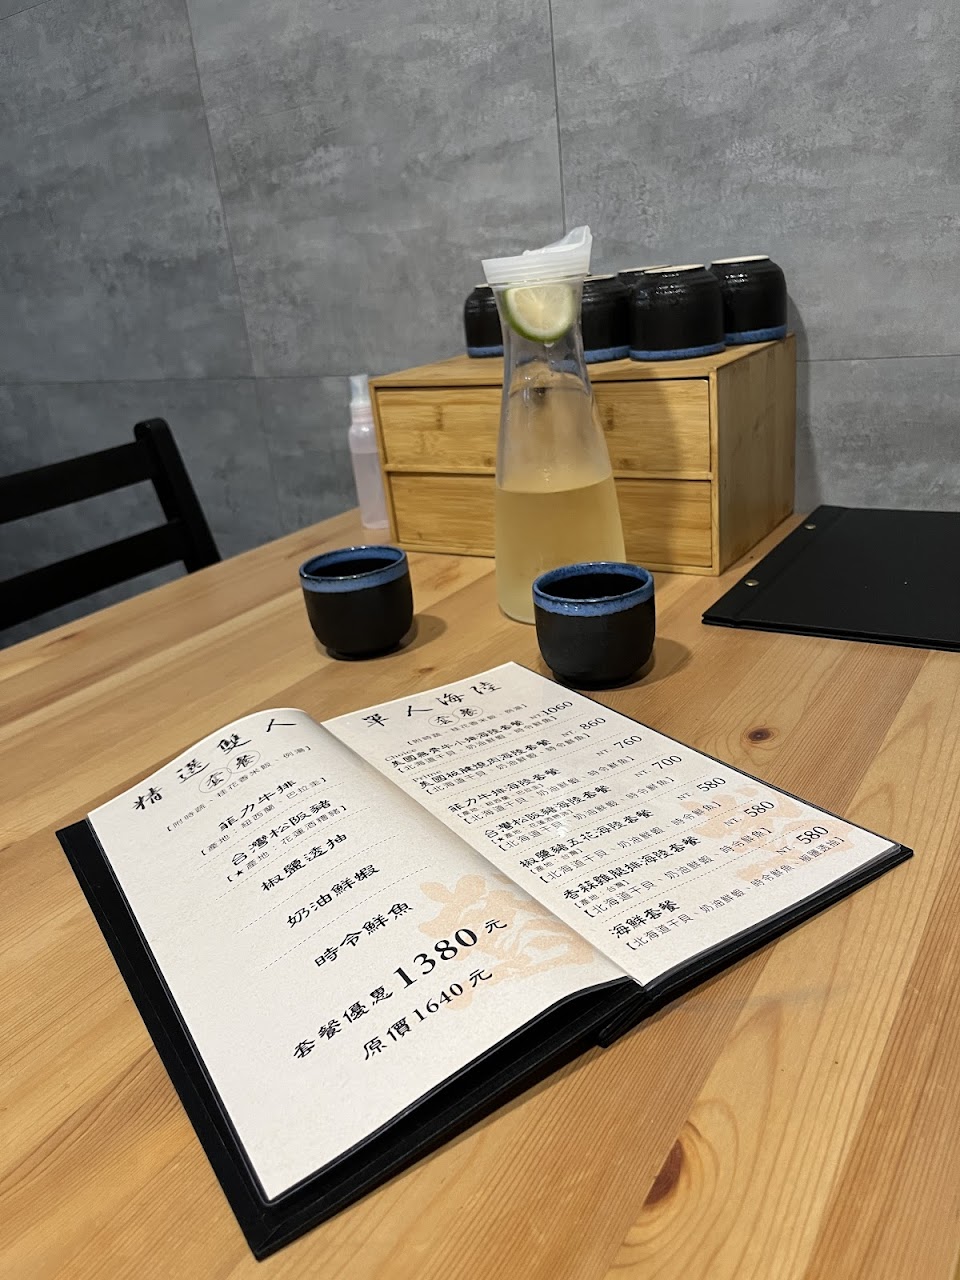 精選雙人
套餐
【附時蔬．桂花香米飯．例湯】
菲力牛排
【產地：紐西蘭、巴拉圭】
台灣松阪豬
【★產地：花蓮酒糟豬】
椒鹽透抽
奶油鮮蝦
時令鮮魚
套餐優惠1380元
原價1640元
單人海陸
套餐
【附時蔬．桂花香米飯．例湯】
Choice
美國無骨牛小排海陸套餐 NT 1060
【北海道干貝、奶油鮮蝦、時令鮮魚】
Prime
美國板腱燒肉海陸套餐 NT 860
【北海道干貝、奶油鮮蝦、時令鮮魚】
菲力牛排海陸套餐 NT. 760
【產地：紐西蘭、巴拉圭】
【北海道干貝、奶油鮮蝦、時令鮮魚】
台灣松阪豬海陸套餐 NT. 700
【★產地：花蓮酒糟豬】
【北海道干貝、奶油鮮蝦、時令鮮魚】
椒鹽豬五花海陸套餐 NT. 580
【產地：台灣】
【北海道干貝、奶油鮮蝦、時令鮮魚】
香蒜雞腿排海陸套餐 NT. 580
【產地：台灣】
【北海道干貝、奶油鮮蝦、時令鮮魚】
海鮮套餐 NT 580
【北海道干貝、奶油鮮蝦、時令鮮魚、椒鹽透抽】